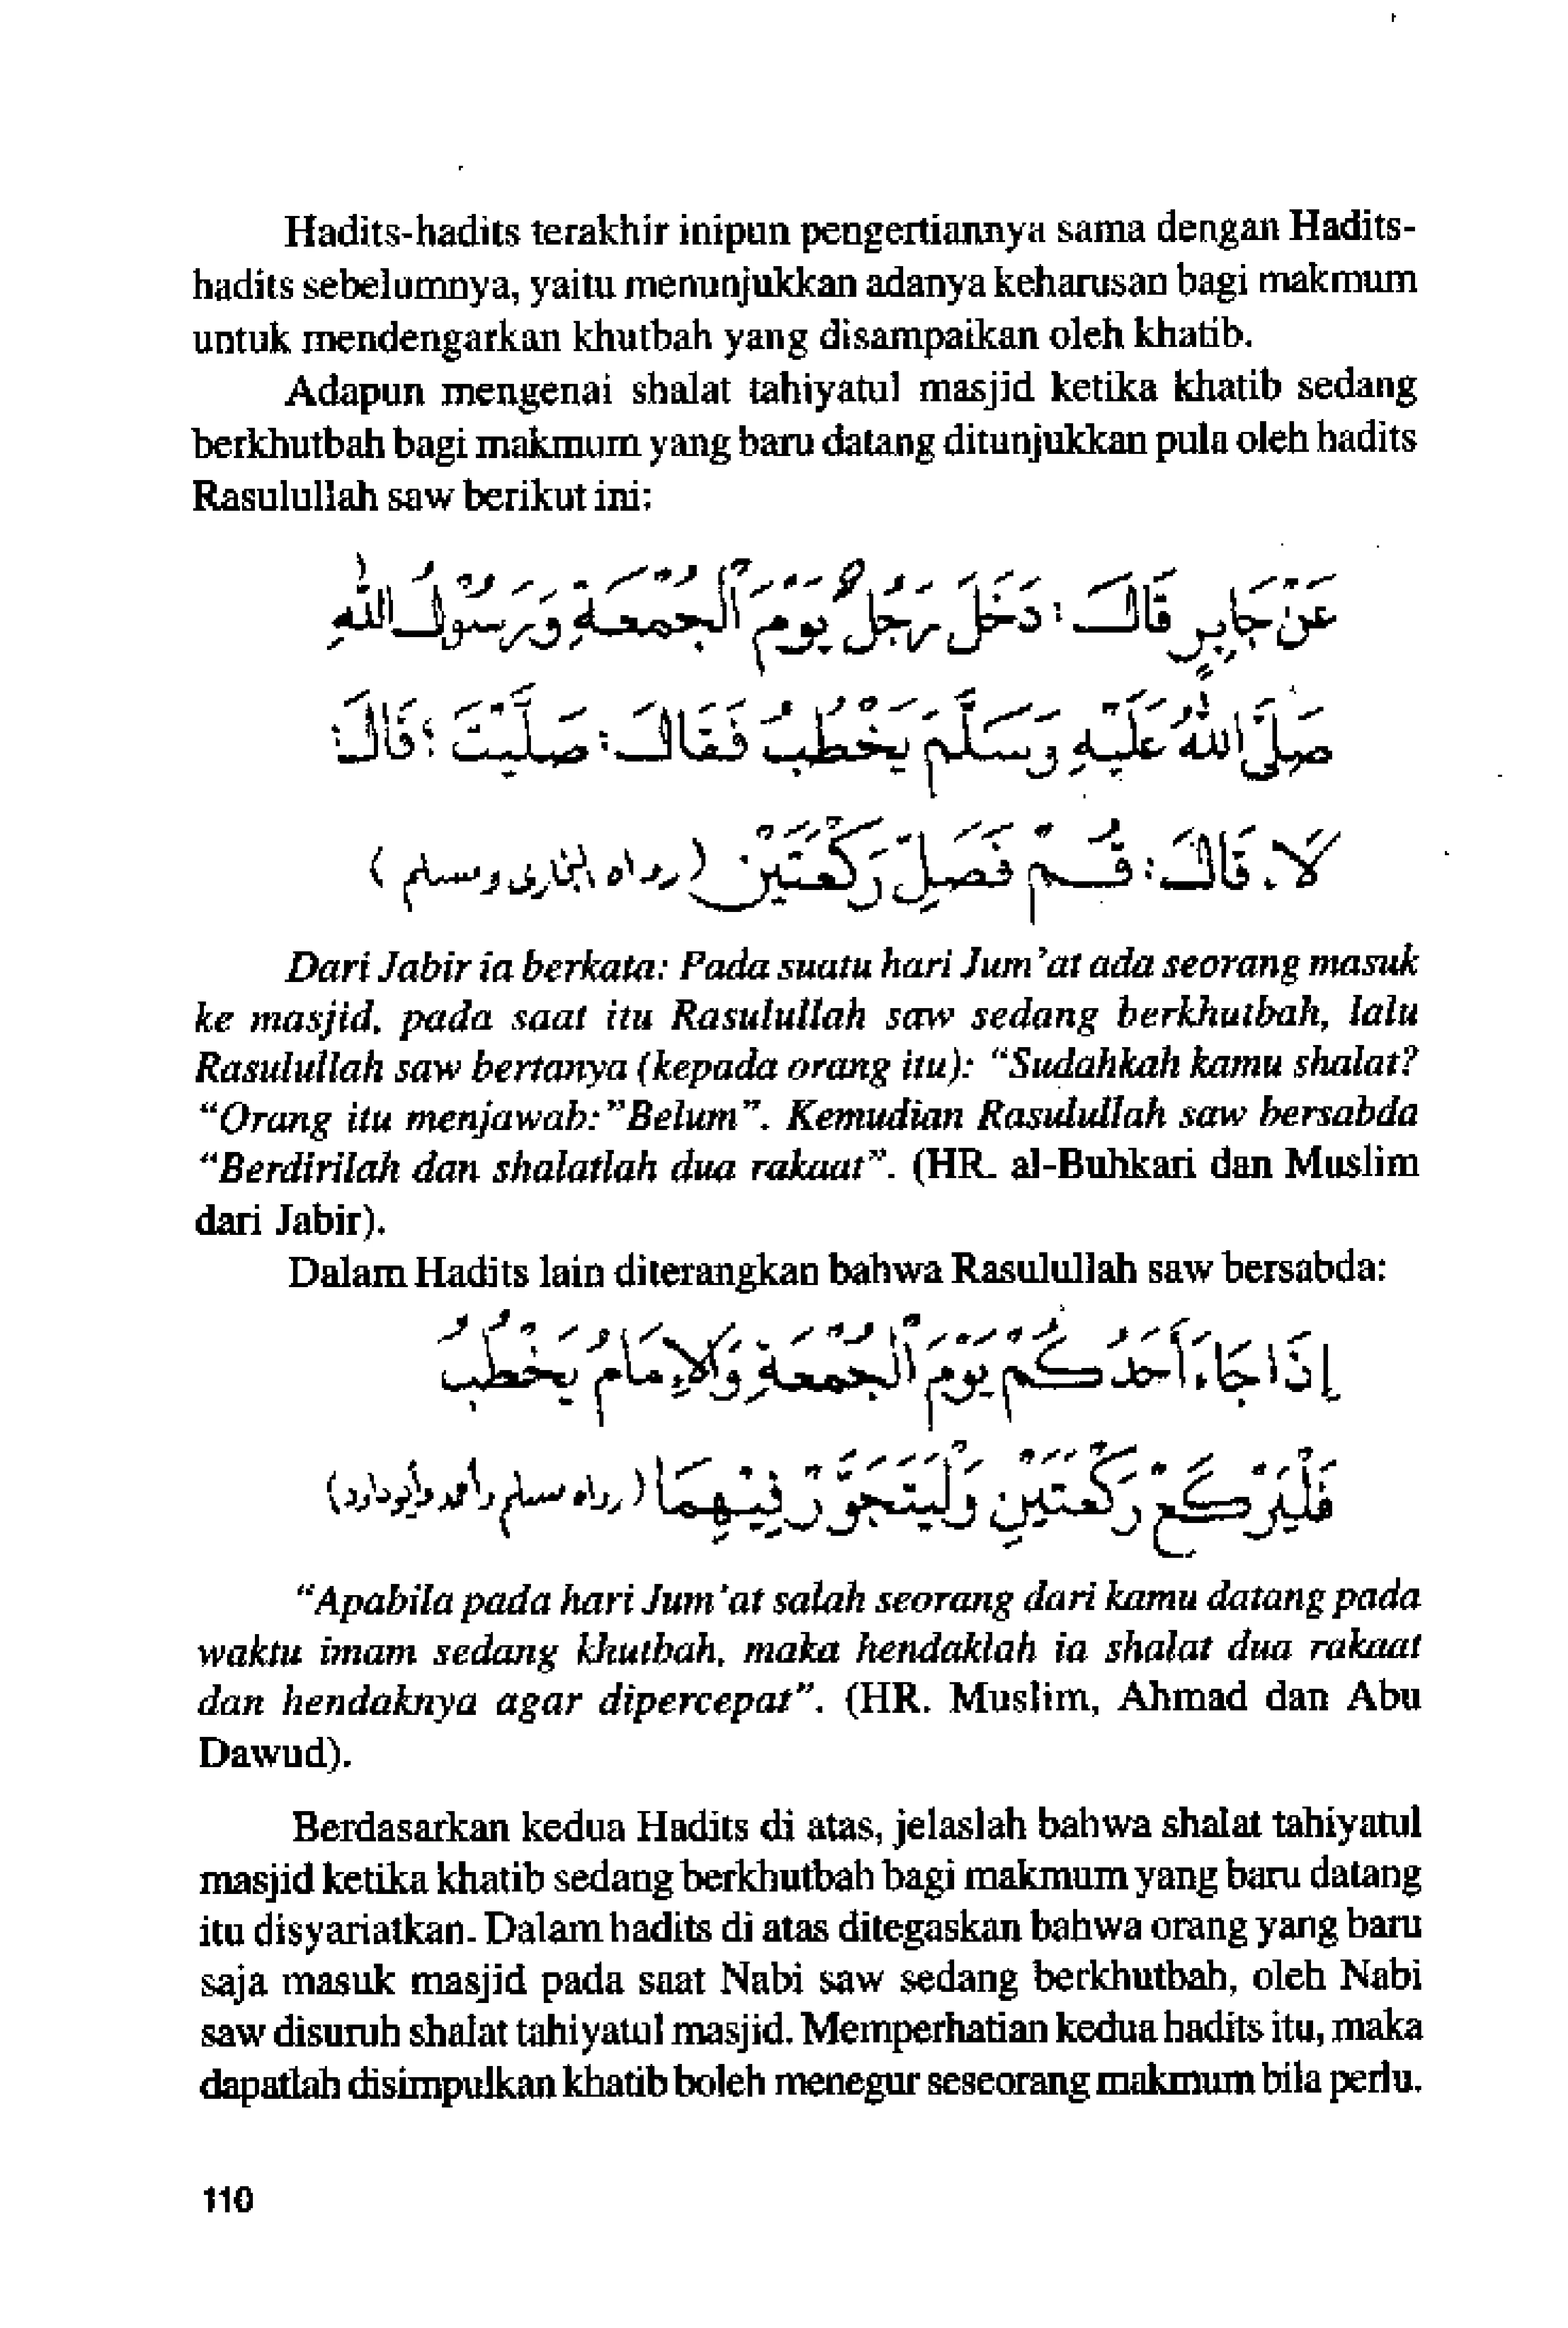 Hadits-hadits terakhir inipun pengertiannya sama dengan Hadits-
hadits sebelumnya, yaitu menunjukkan adanya keharusan bagi makmum
untuk mendengarkan khutbah yang disampaikan oleh khatib.
Adapun mengenai shalat tahiyatul masjid ketika khatib sedang
berkhutbah bagi makmum yang baru datang ditunjukkan pula oleh hadits
Rasulullah saw berikut ini:
عَنْ جَابِرٍ قَالَ : دَخَلَ رَجُلٌ يَوْمَ الْجُمْعَةِ وَرَسُوْلُ اللهِ
صَلَّى اللهُ عَلَيْهِ وَسَلَّمَ يَخْطُبُ فَقَالَ : صَلَّيْتَ ؟ قَالَ :
لَا . قَالَ : قُمْ فَصَلِّ رَكْعَتَيْنِ ( رواه البخارى ومسلم )
Dari Jabir ia berkata: Pada suatu hari Jum'at ada seorang masuk
ke masjid, pada saat itu Rasulullah saw sedang berkhutbah, lalu
Rasulullah saw bertanya (kepada orang itu): "Sudahkah kamu shalat?
"Orang itu menjawab:"Belum". Kemudian Rasulullah saw bersabda
"Berdirilah dan shalatlah dua rakaat". (HR. al-Buhkari dan Muslim
dari Jabir).
Dalam Hadits lain diterangkan bahwa Rasulullah saw bersabda:
إِذَا جَاءَ أَحَدُكُمْ يَوْمَ الْجُمْعَةِ وَالْاِمَامُ يَخْطُبُ
فَلْيَرْكَعْ رَكْعَتَيْنِ وَلْيَتَجَوَّزْ فِيْهِمَا ( رواه مسلم وأحمد وأبو داود )
"Apabila pada hari Jum'at salah seorang dari kamu datang pada
waktu imam sedang khutbah, maka hendaklah ia shalat dua rakaat
dan hendaknya agar dipercepat". (HR. Muslim, Ahmad dan Abu
Dawud).
Berdasarkan kedua Hadits di atas, jelaslah bahwa shalat tahiyatul
masjid ketika khatib sedang berkhutbah bagi makmum yang baru datang
itu disyariatkan. Dalam hadits di atas ditegaskan bahwa orang yang baru
saja masuk masjid pada saat Nabi saw sedang berkhutbah, oleh Nabi
saw disuruh shalat tahiyatul masjid. Memperhatian kedua hadits itu, maka
dapatlah disimpulkan khatib boleh menegur seseorang makmum bila perlu.
110